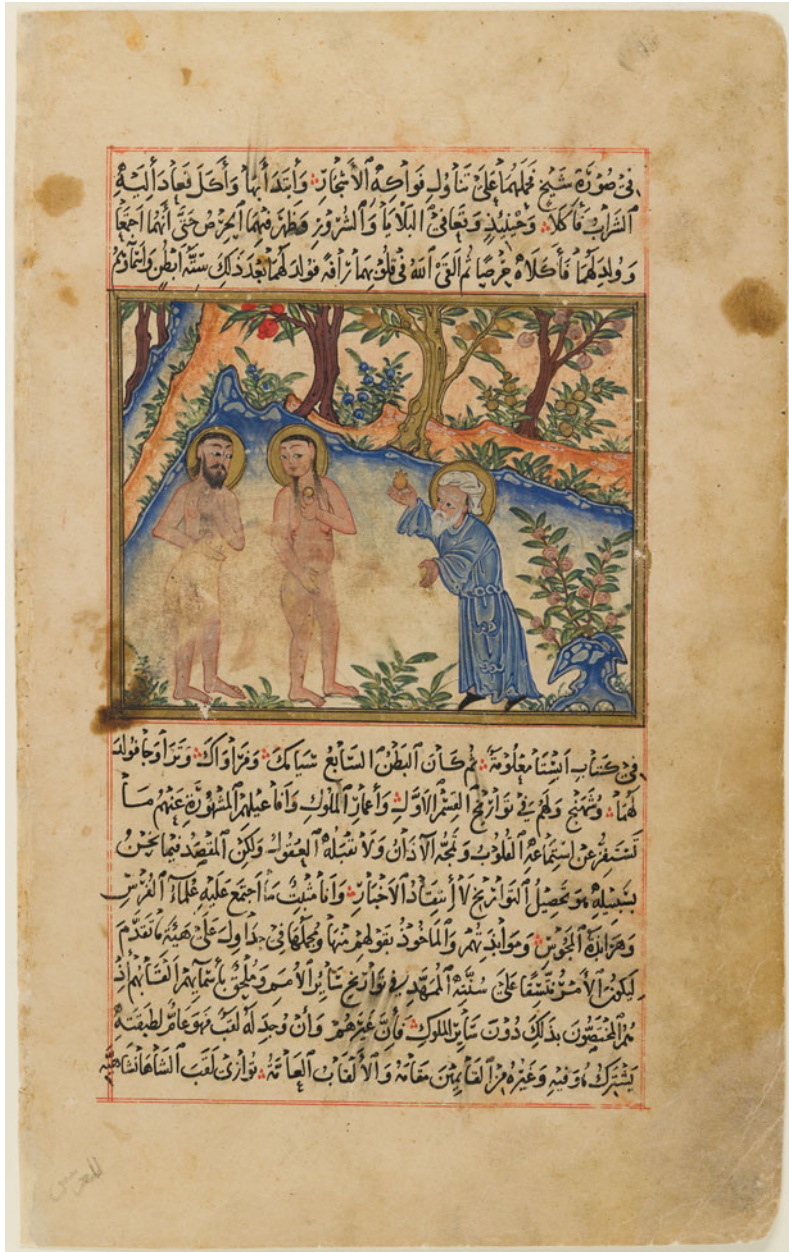 في صورة شيخ فحملهما على تناول فواكه الأشجار وابتدأ بها وأكل فعاد إليه
الشراب فأكلا وحينئذ وقعا في البلايا والشرور وظهر فيهما الحرص حتى أنهما اجتمعا
وولد لهما فأكلاه حرصا ثم القى الله في قلوبهما رأفة فولد لهما بعد ذلك ستة ابطن واسماؤهم
في كتاب ابستا معلومة ثم كان البطن السابع سيامك وفراواك وتزاوجا فولد
لهما وشهنج ولهم في تواريخ القسم الاول وأعمار الملوك وأفاعيلهم المشهورة عنهم ما
تستنفر عن استماعه القلوب وتمجه الآذان ولا تقبله العقول ولكن المقصد فيما نحن
بسبيله هو تحصيل التواريخ لا انتقاد الاخبار وانا مثبت ما اجتمع عليه علماء الفرس
وهرابذة المجوس وموابذتهم والمأخوذ بقولهم منها ومجملها في جداول على هيئة ما تقدم
ليكون الأمر متسقا على سننه الممهد في تواريخ سائر الأمم وملحق بأسمائهم القابهم إذ
هم المختصون بذلك دون سائر الملوك فأن غيرهم وأن وجد له لقب فهو عام لطبقته
يشترك هو فيه وغيره من القائمين مقامه والألقاب العامة توازى لقب الشاهانشاهية